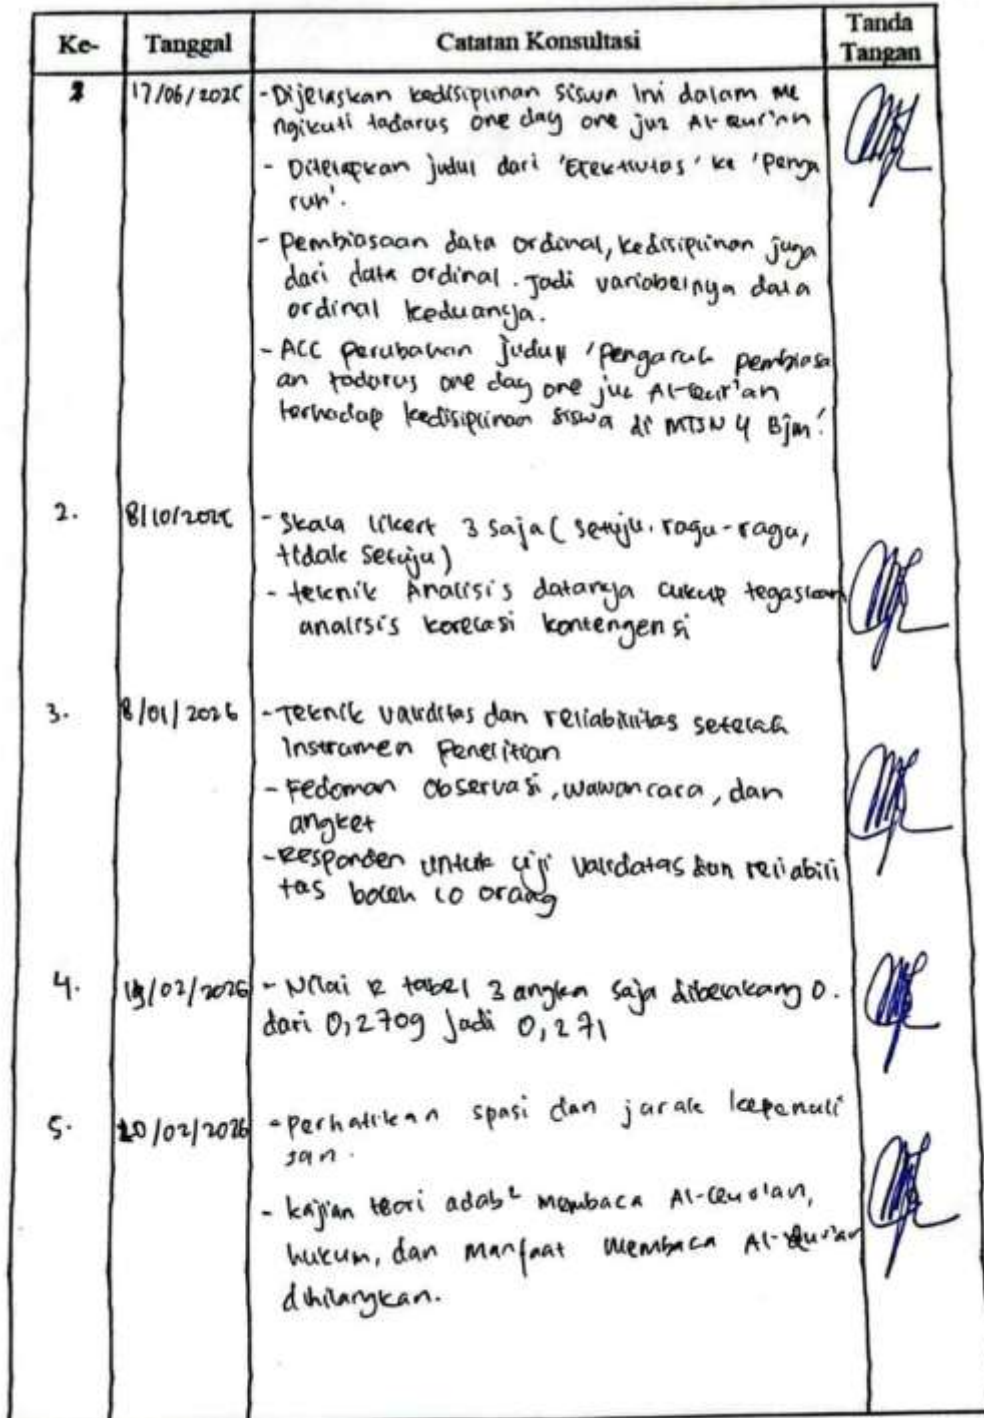 Ke- Tanggal Catatan Konsultasi Tanda Tangan
17/06/2025 - Dijelaskan kedisiplinan siswa ini dalam me
ngikuti tadarus one day one juz Al-Qur'an
- Ditetapkan judul dari 'Efektivitas' ke 'Penga
ruh'.
- Pembiasaan data ordinal, kedisiplinan juga
dari data ordinal. Jadi variabelnya data
ordinal keduanya.
- ACC perubahan judul 'Pengaruh pembiasa
an tadarus one day one juz Al-Qur'an
terhadap kedisiplinan siswa di MTSN 4 Bjm'.
2. 8/10/2025 - Skala likert 3 saja (setuju, ragu-ragu,
tidak setuju)
- teknik Analisis datanya cukup tegaskan
analisis korelasi kontengensi
3. 8/01/2026 - Teknik validitas dan reliabilitas setelah
instrumen Penelitian
- Pedoman observasi, wawancara, dan
angket
- Responden untuk uji validatas dan reliabili
tas boleh 10 orang
4. /02/2026 - Nilai R tabel 3 angka saja dibelakang 0.
dari 0,2709 jadi 0,271
5. 20/02/2026 - perhatikan spasi dan jarak kepenuli
san.
- kajian teori adab² membaca Al-Qur'an,
hukum, dan manfaat membaca Al-Qur'an
dihilangkan.